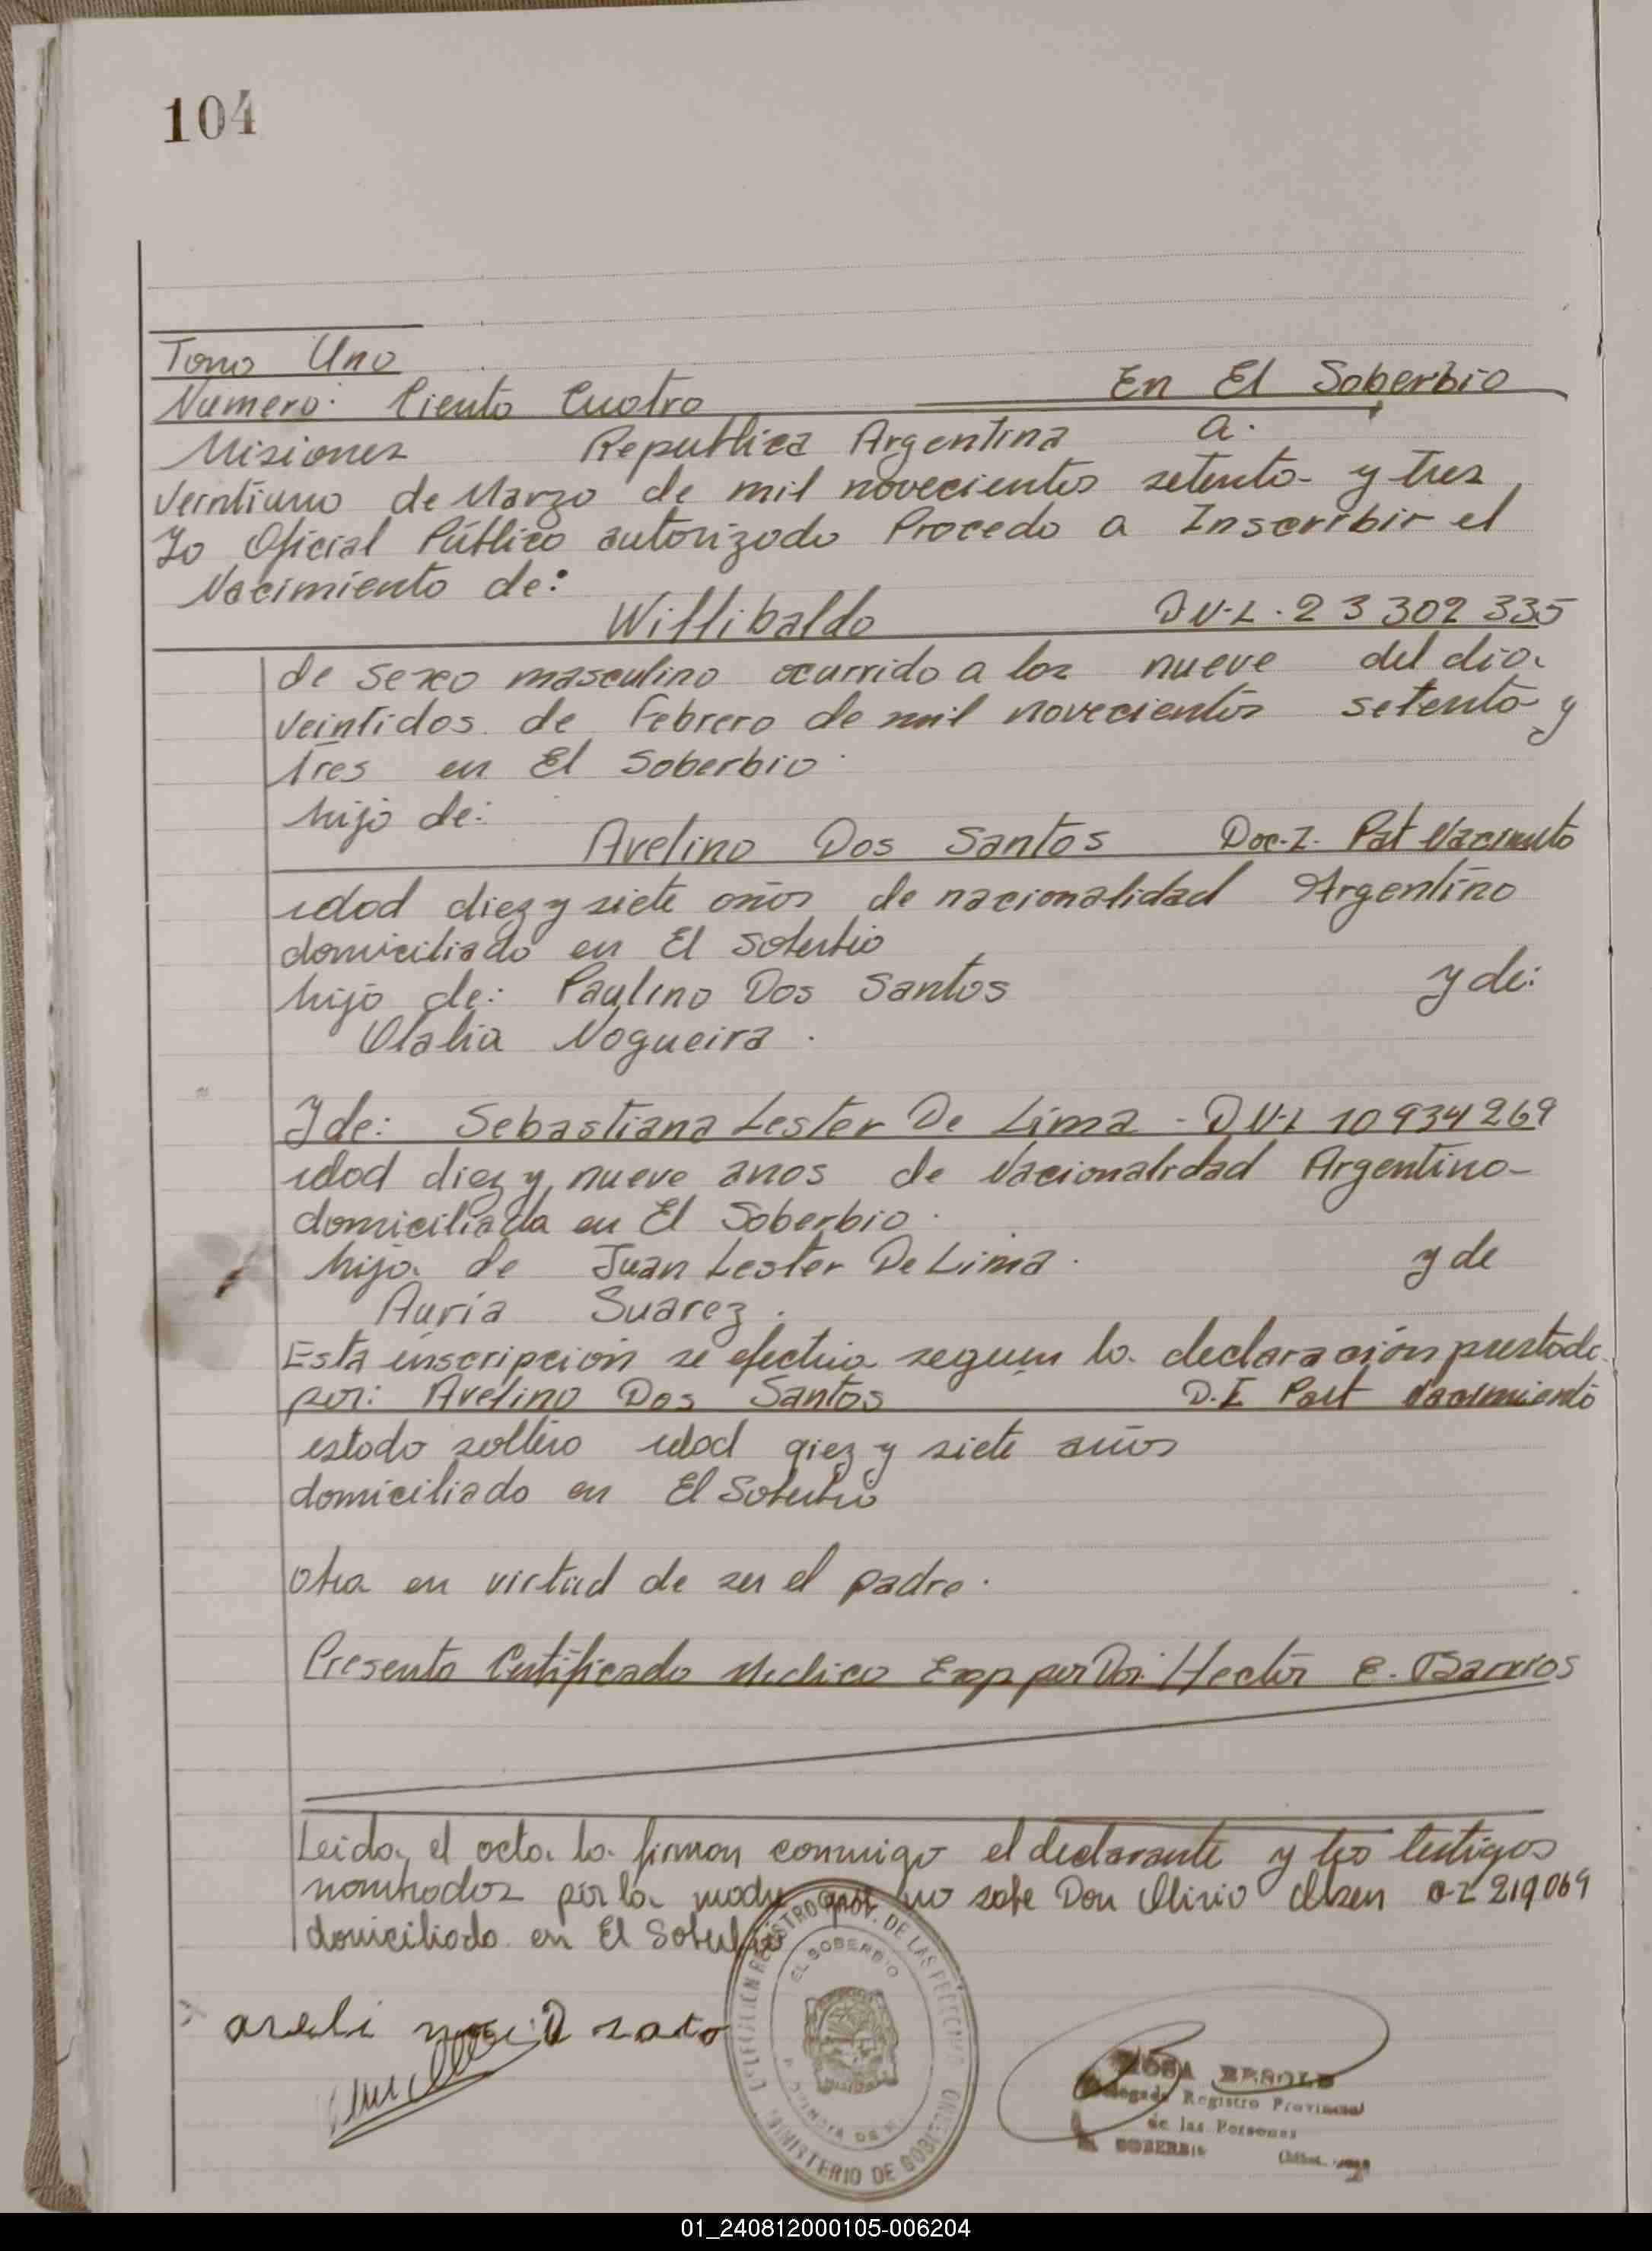 104
Tomo Uno
Numero: Ciento Cuatro En El Soberbio
Misiones Republica Argentina a.
veintiuno de Marzo de mil novecientos setenta y tres
Yo Oficial Público autorizado Procedo a Inscribir el
Nacimiento de:
Willibaldo D N-I . 23 302 335
de sexo masculino ocurrido a las nueve del dia
veintidos de Febrero de mil novecientos setenta y
tres en El Soberbio.
hijo de:
Avelino Dos Santos Doc. I. Pat Nacimnto
edad diez y siete años de nacionalidad Argentino
domiciliado en El Soberbio
hijo de: Paulino Dos Santos y de:
Olalia Nogueira.
Y de: Sebastiana Lester De Lima - D N-I 10 934 269
edad diez y nueve anos de Nacionalidad Argentina-
domiciliada en El Soberbio.
hija de Juan Lester De Lima. y de
Auria Suarez.
Esta inscripcion se efectua segun la declaración prestada
por: Avelino Dos Santos D.I Part Nacimiento
estado soltero edad qiez y siete años
domiciliado en El Soberbio
obra en virtud de ser el padre.
Presento Certificado Medico Exp por Dor: Hector E. Barrios
Leida el acta la firman conmigo el declarante y los testigos
nombrados por la madre que no sabe Don Olen 219069
domiciliado en El Soberbio
DELEGACION REGISTRO PROV. DE LAS PERSONAS
EL SOBERBIO
MINISTERIO DE GOBIERNO
Registro Provincial
de las Personas
SOBERBIO
01_240812000105-006204